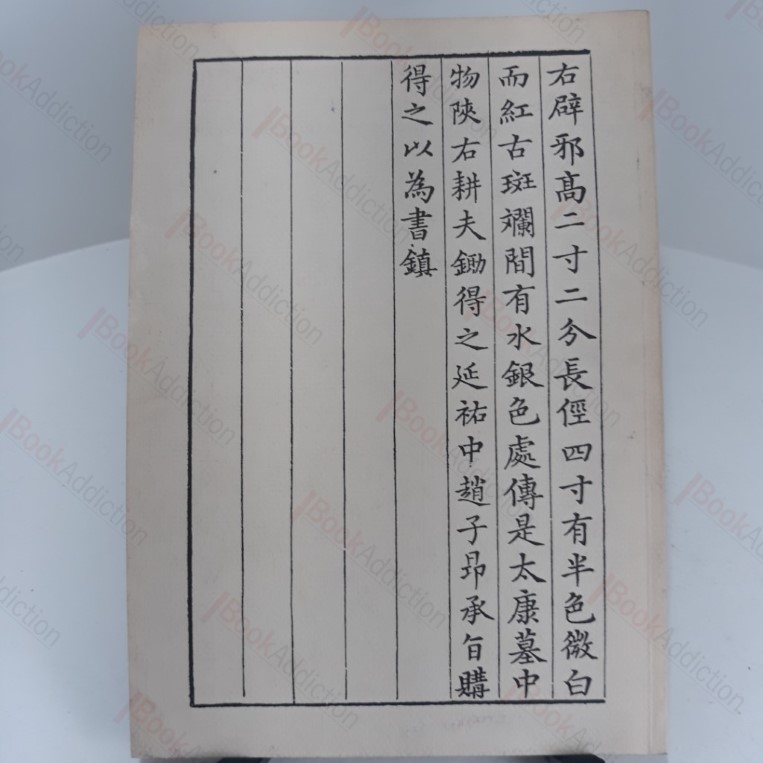 右辟邪髙二寸二分長徑四寸有半色微白
而紅古斑斕間有水銀色處傳是太康墓中
物陜右耕夫鋤得之延祐中趙子昻承旨購
得之以為書鎮
BookAddiction